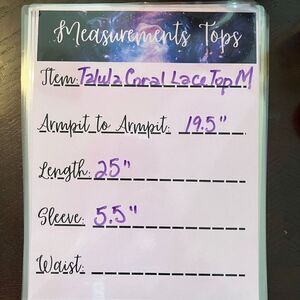 Measurements Tops
Item: Talula Coral Lace Top M
Armpit to Armpit: 19.5"
Length: 25"
Sleeve: 5.5"
Waist: